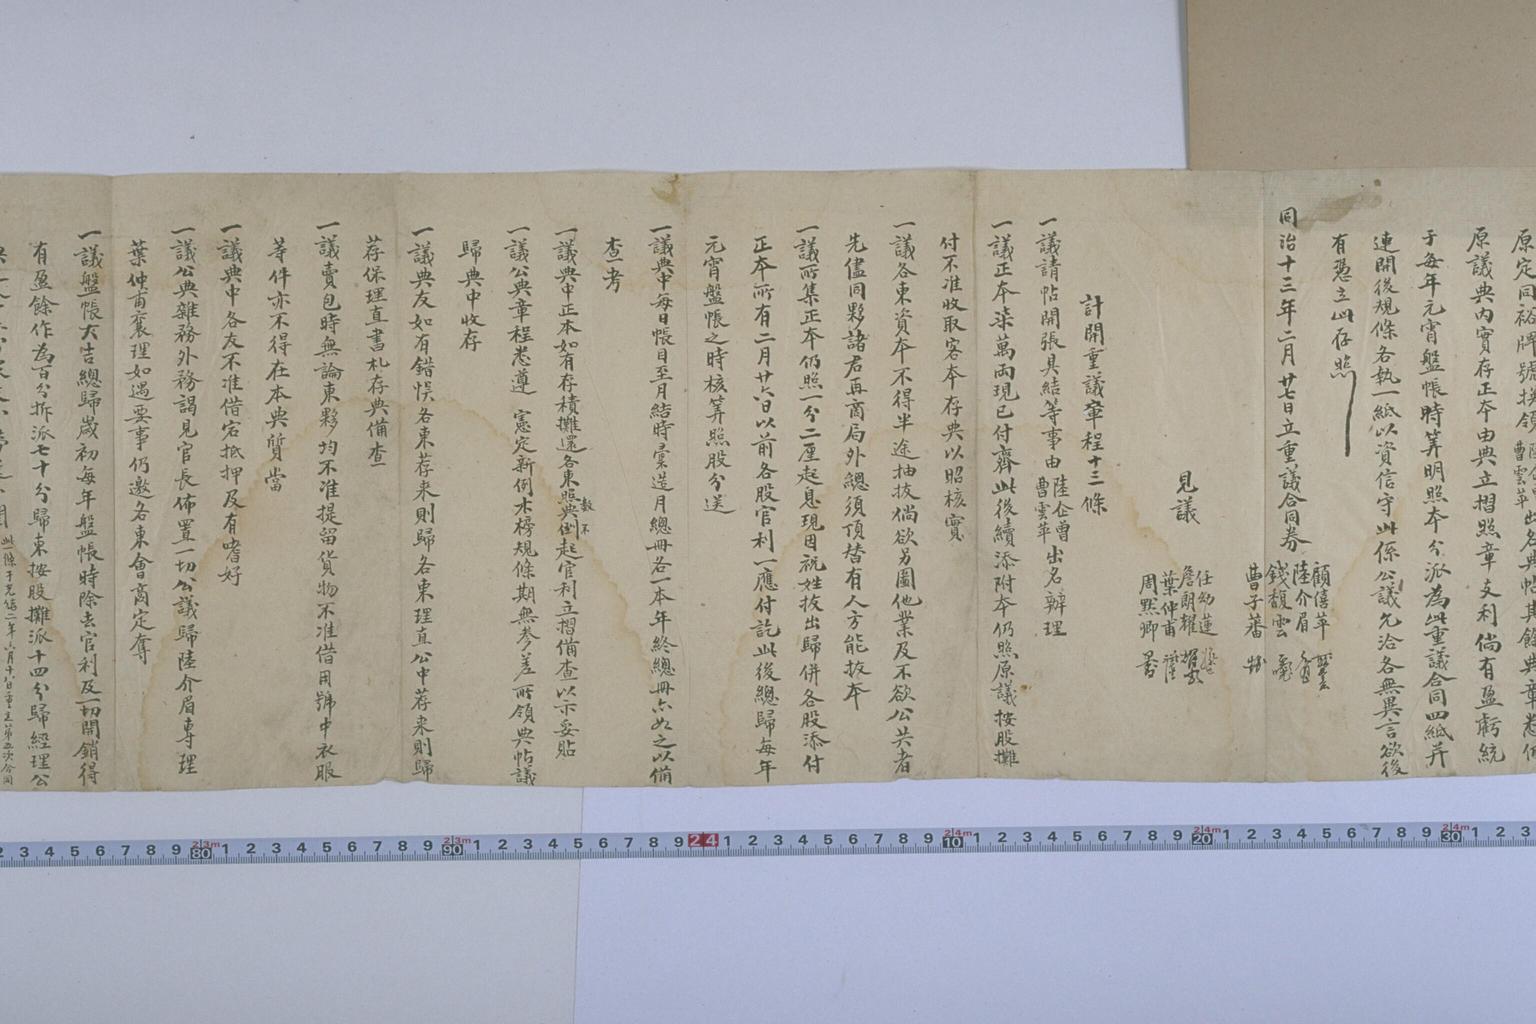 原定同裕牌號換領
曹雲苹
出名典帖其餘典章悉仍
原議典內實存正本由典立摺照章支利倘有盈虧統
于每年元宵盤帳時算明照本分派為此重議合同四紙并
連開後規條各執一紙以資信守此係公議允洽各無異言欲後
有憑立此存照
同治十三年二月廿七日立重議合同券
顧僖苹
陸介眉
錢馥雲
曹子蕃
見議
任幼蓮
詹朗耀
葉仲甫
周黙卿
計開重議章程十三條
一議請帖開張具結等事由陸企曾曹雲苹出名辦理
一議正本柒萬兩現已付齊此後續添附本仍照原議按股攤
付不准收取客本存典以昭核實
一議各東資本不得半途抽拔倘欲另圖他業及不欲公共者
先儘同夥諸君再商局外總須頂替有人方能拔本
一議所集正本仍照一分二厘起息現因祝姓拔出歸併各股添付
正本所有二月廿六日以前各股官利一應付訖此後總歸每年
元宵盤帳之時核算照股分送
一議典中每日帳目至月結時彙造月總冊各一本年終總冊亦如之以備
查考
一議典中正本如有存積攤還各東照數不典例起官利立摺備查以示妥貼
一議公典章程悉遵 憲定新例木榜規條期無參差所領典帖議
歸典中收存
一議典友如有錯悮各東荐来則歸各東理直公中荐来則歸
荐保理直書札存典備查
一議賣包時無論東夥均不准提留貨物不准借用號中衣服
等件亦不得在本典質當
一議典中各友不准借宕抵押及有嗜好
一議公典雜務外務謁見官長佈置一切公議歸陸介眉專理
葉仲甫襄理如遇要事仍邀各東會商定奪
一議盤帳大吉總歸歲初每年盤帳時除去官利及一切開銷得
有盈餘作為百分拆派七十分歸東按股攤派十四分歸經理公
此一條于光緒二年六月十六日重立第五次合同
2 3 4 5 6 7 8 9 80 1 2 3 4 5 6 7 8 9 90 1 2 3 4 5 6 7 8 9 24 1 2 3 4 5 6 7 8 9 10 1 2 3 4 5 6 7 8 9 20 1 2 3 4 5 6 7 8 9 30 1 2 3